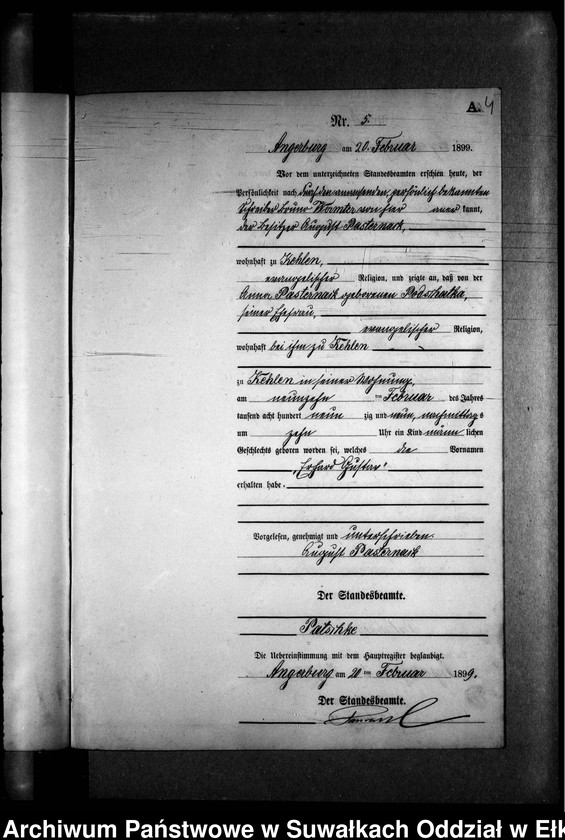 A. 4
Nr. 5.
Angerburg am 20. Februar 1899.
Vor dem unterzeichneten Standesbeamten erschien heute, der
Persönlichkeit nach durch den anwesenden, persönlich bekannten
Schreiber Bruno Wormter von hier aner kannt,
der Besitzer August Pasternack,
wohnhaft zu Kehlen,
evangelischer Religion, und zeigte an, daß von der
Anna Pasternack geborenen Podschatka,
seiner Ehefrau,
evangelischer Religion,
wohnhaft bei ihm zu Kehlen
zu Kehlen in seiner Wohnung,
am neunzehn ten Februar des Jahres
tausend acht hundert neun zig und neun, nachmittags
um zehn Uhr ein Kind männ lichen
Geschlechts geboren worden sei, welches die Vornamen
„Erhard Gustav“
erhalten habe.
Vorgelesen, genehmigt und unterschrieben.
August Pasternack
Der Standesbeamte.
Patschke
Die Uebereinstimmung mit dem Hauptregister beglaubigt.
Angerburg am 20 ten Februar 1899.
Der Standesbeamte.
Archiwum Państwowe w Suwałkach Oddział w Ełk